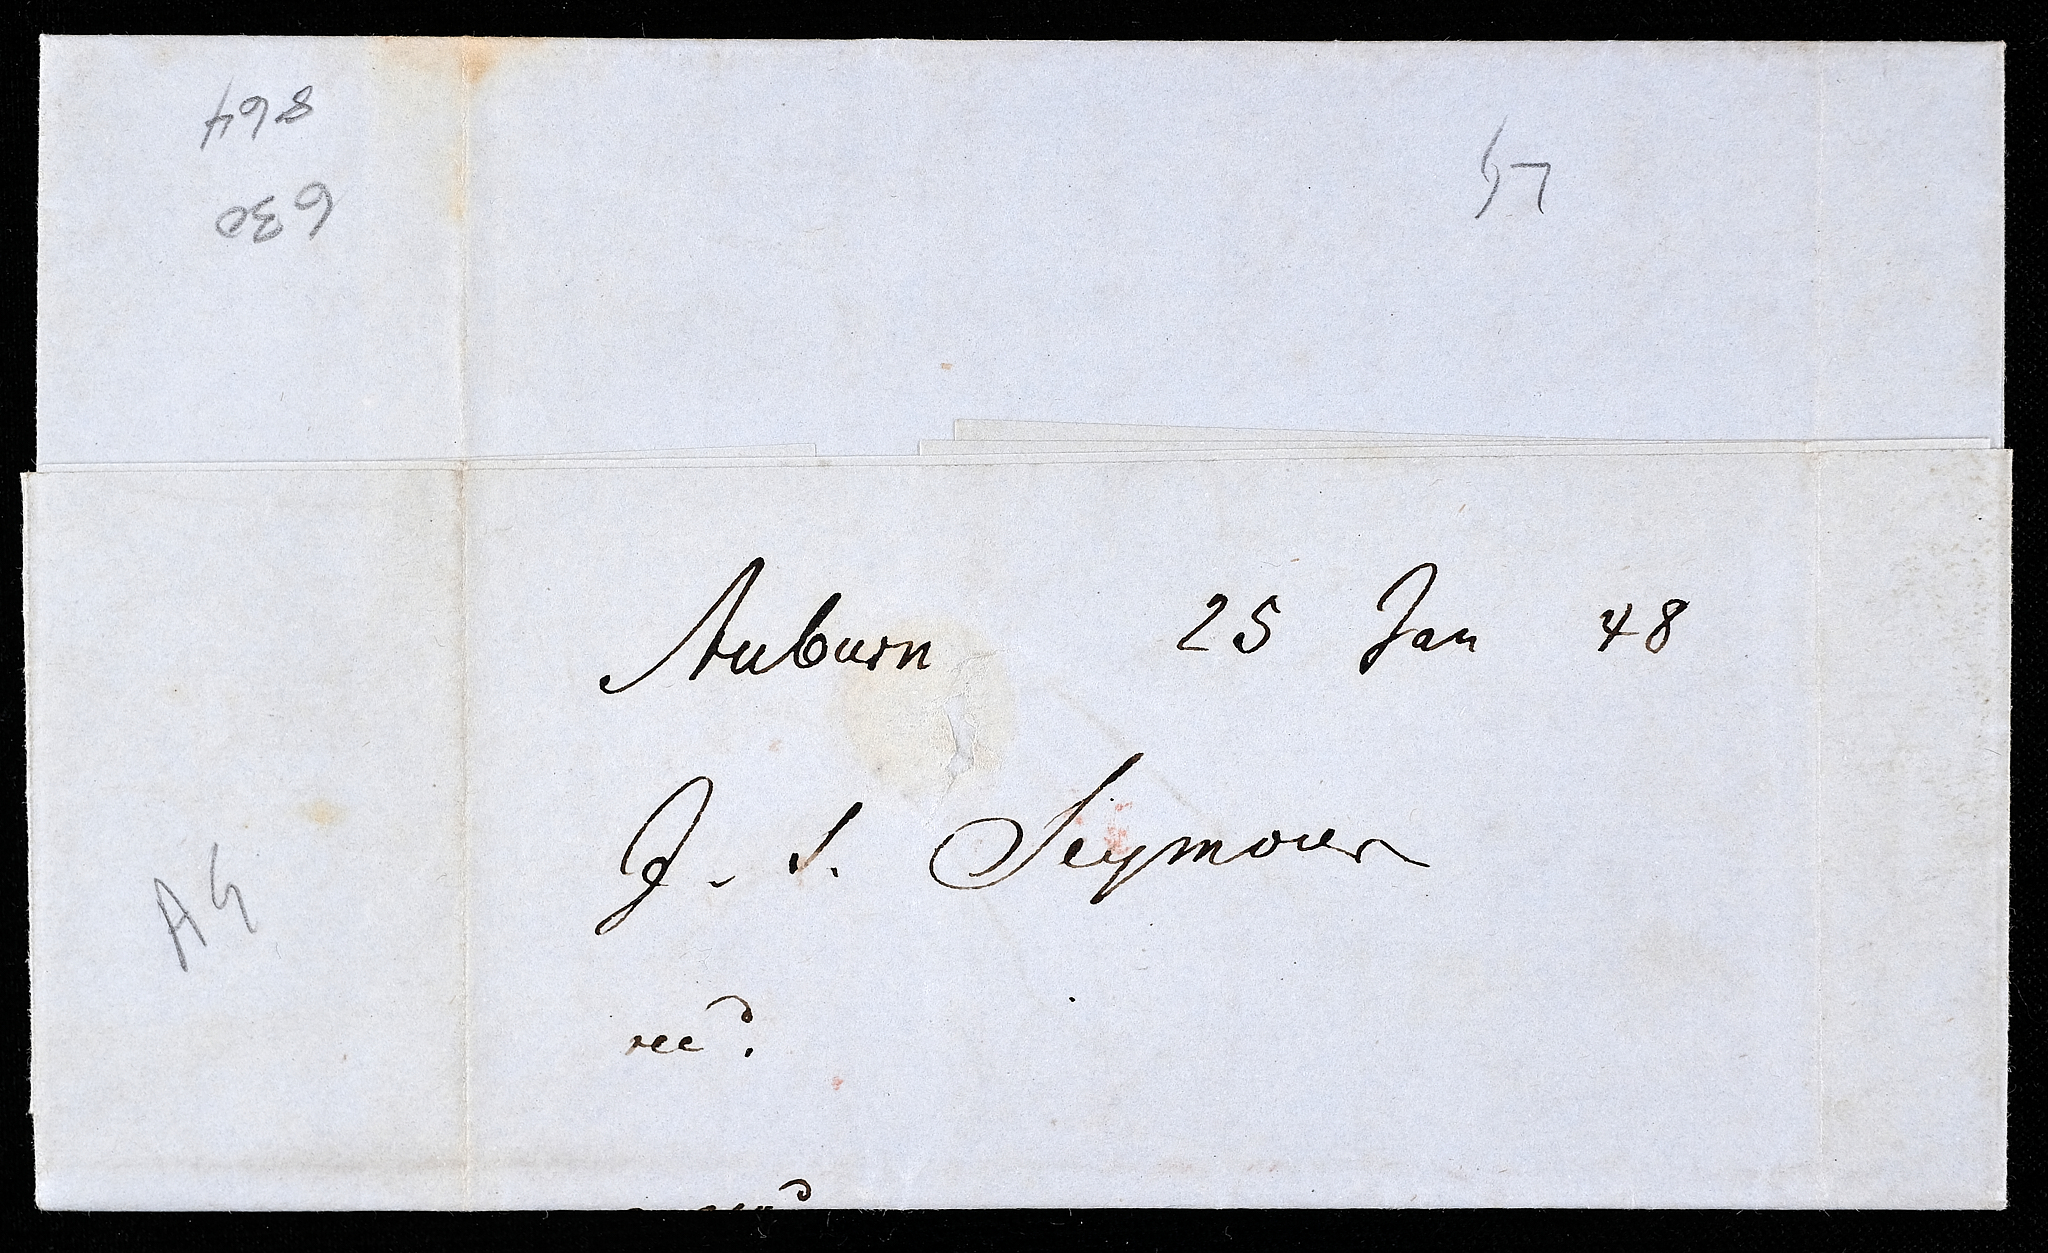 864
630
Auburn 25 Jan 48
J. S. Seymour
recd.